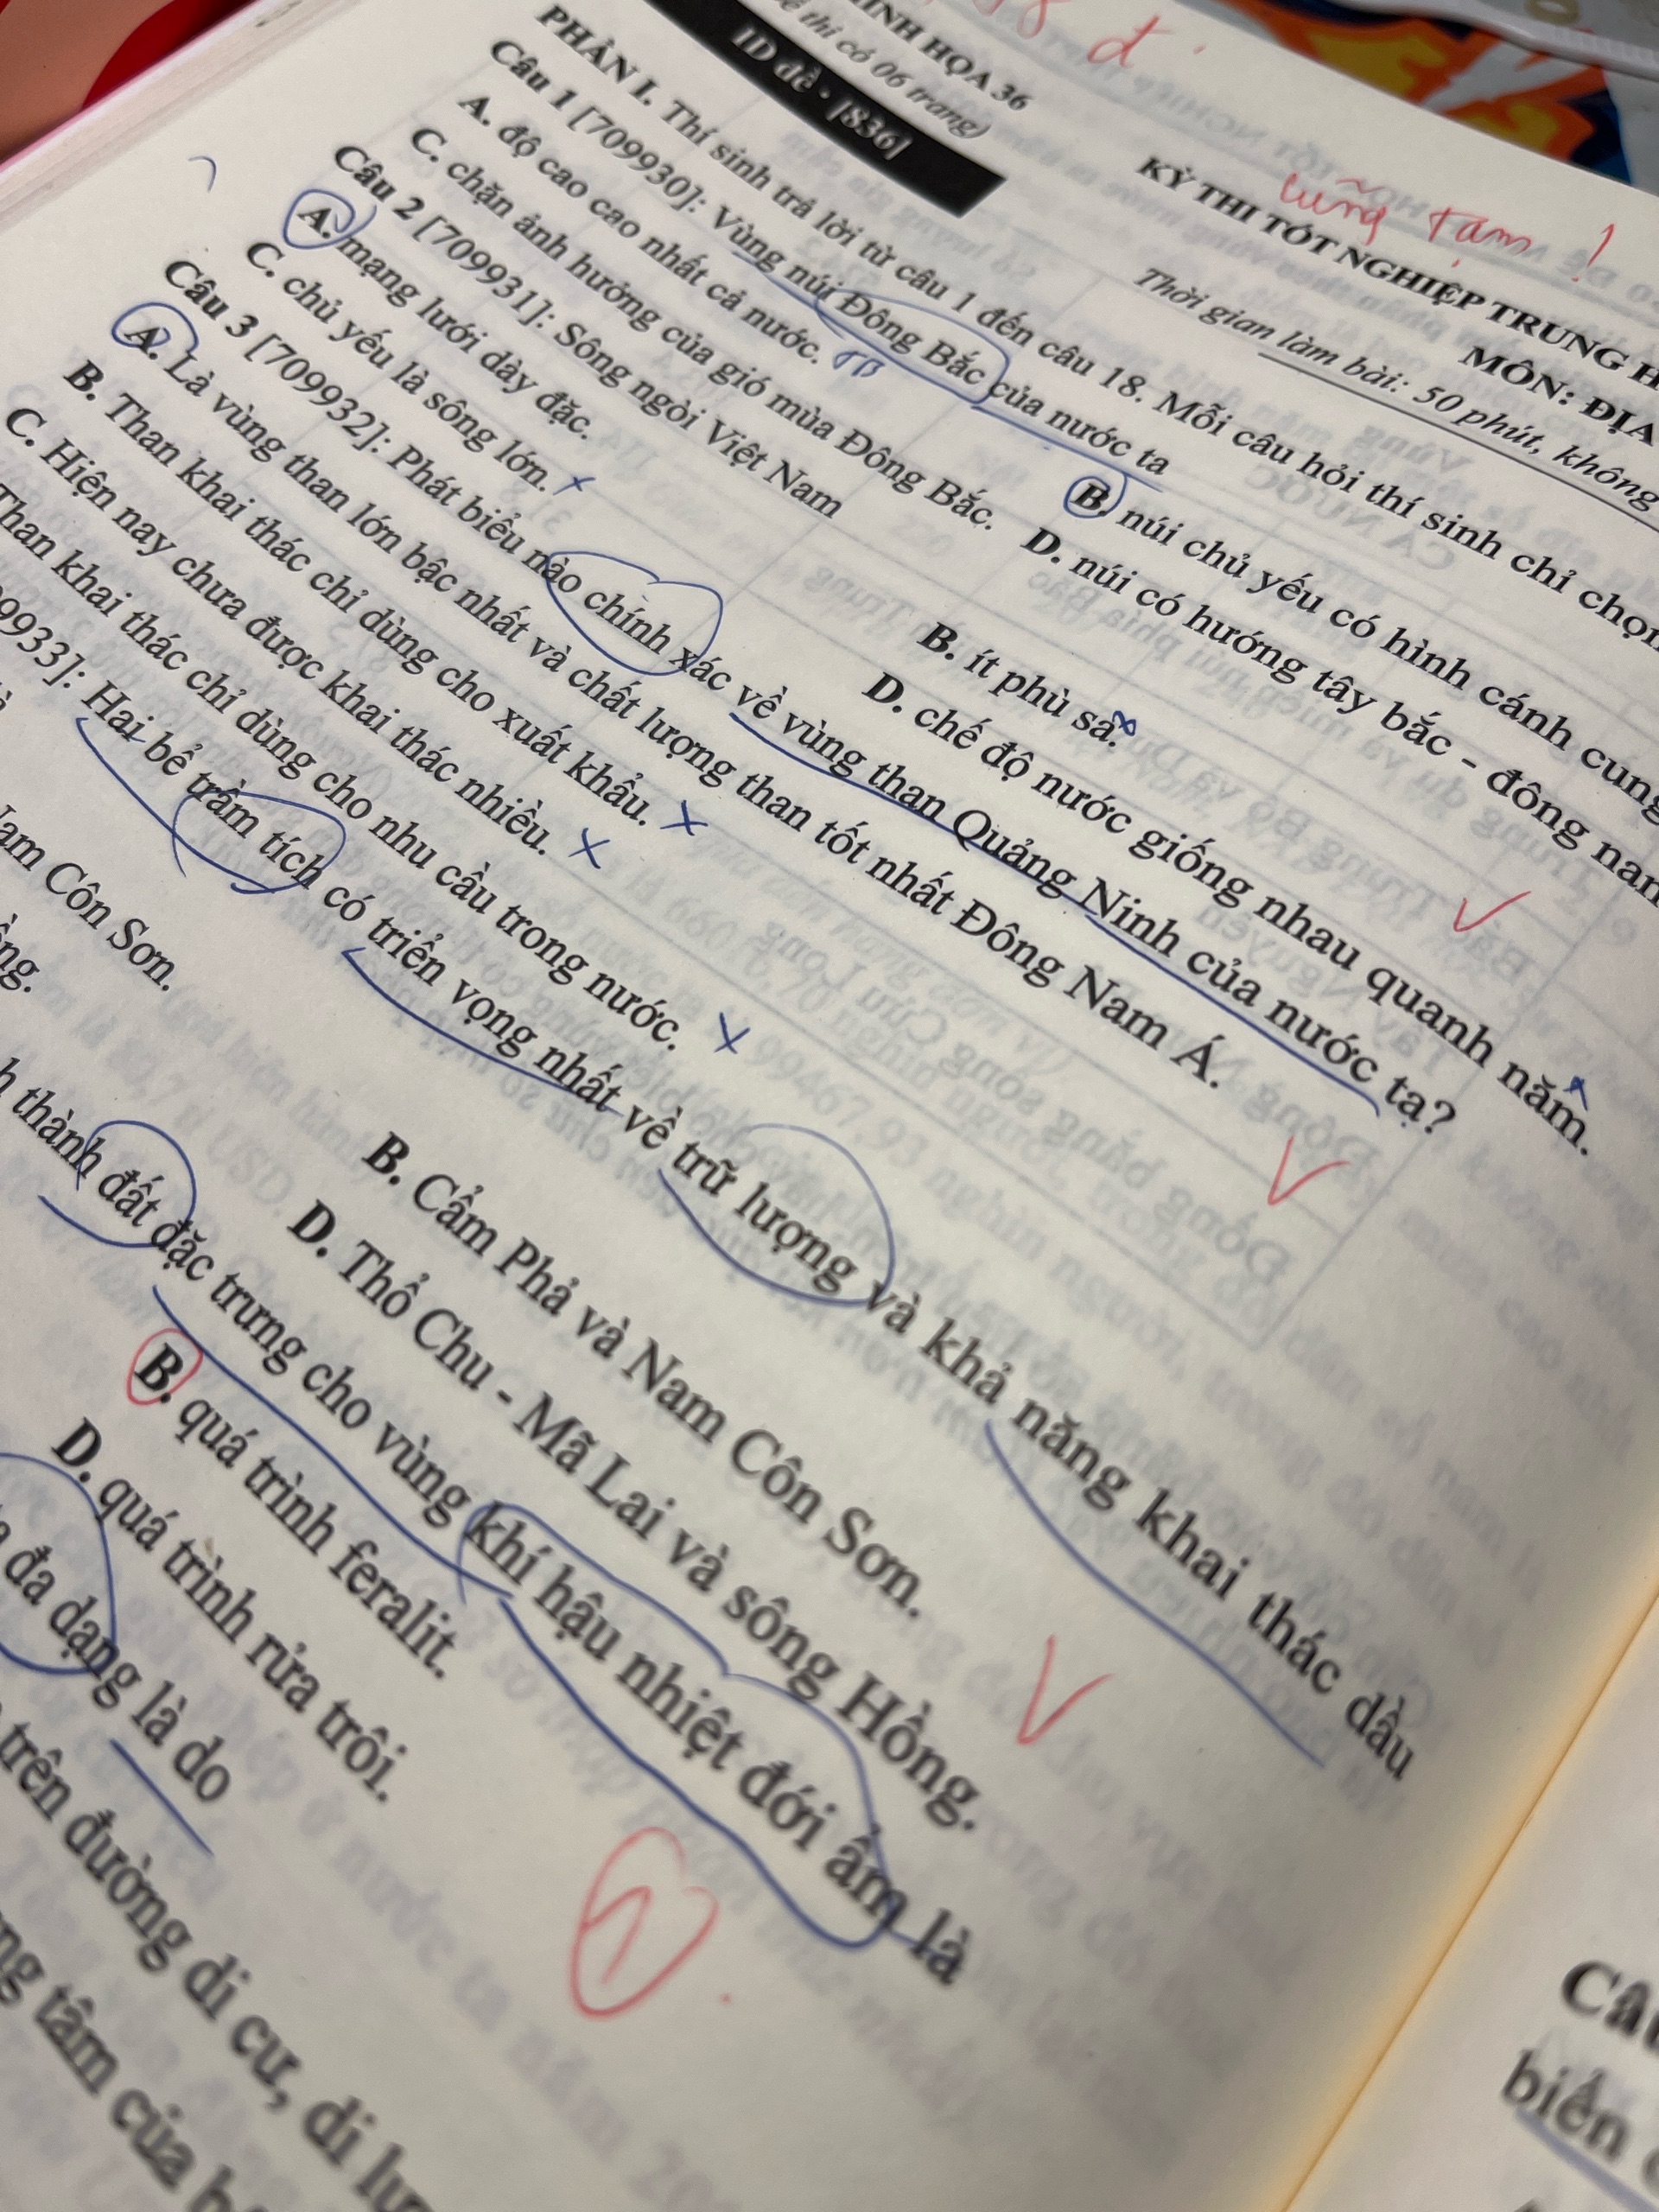 đ.
cũng tạm !
MINH HỌA 36
thi có 06 trang)
ID đề • [836]
KỲ THI TỐT NGHIỆP TRUNG H
MÔN: ĐỊA
Thời gian làm bài: 50 phút, không
PHẦN I. Thí sinh trả lời từ câu 1 đến câu 18. Mỗi câu hỏi thí sinh chỉ chọn
Câu 1 [709930]: Vùng núi Đông Bắc của nước ta
A. độ cao cao nhất cả nước. TB
B. núi chủ yếu có hình cánh cung
C. chặn ảnh hưởng của gió mùa Đông Bắc.
D. núi có hướng tây bắc - đông nam
Câu 2 [709931]: Sông ngòi Việt Nam
A. mạng lưới dày đặc.
B. ít phù sa.
C. chủ yếu là sông lớn.
D. chế độ nước giống nhau quanh năm.
Câu 3 [709932]: Phát biểu nào chính xác về vùng than Quảng Ninh của nước ta?
A. Là vùng than lớn bậc nhất và chất lượng than tốt nhất Đông Nam Á.
B. Than khai thác chỉ dùng cho xuất khẩu.
C. Hiện nay chưa được khai thác nhiều.
Than khai thác chỉ dùng cho nhu cầu trong nước.
9933]: Hai bể trầm tích có triển vọng nhất về trữ lượng và khả năng khai thác dầu
Nam Côn Sơn.
B. Cẩm Phả và Nam Côn Sơn.
D. Thổ Chu - Mã Lai và sông Hồng.
thành đất đặc trưng cho vùng khí hậu nhiệt đới ẩm là
B. quá trình feralit.
D. quá trình rửa trôi.
đa dạng là do
trên đường di cư, di lưu
tâm của
Câu
biến